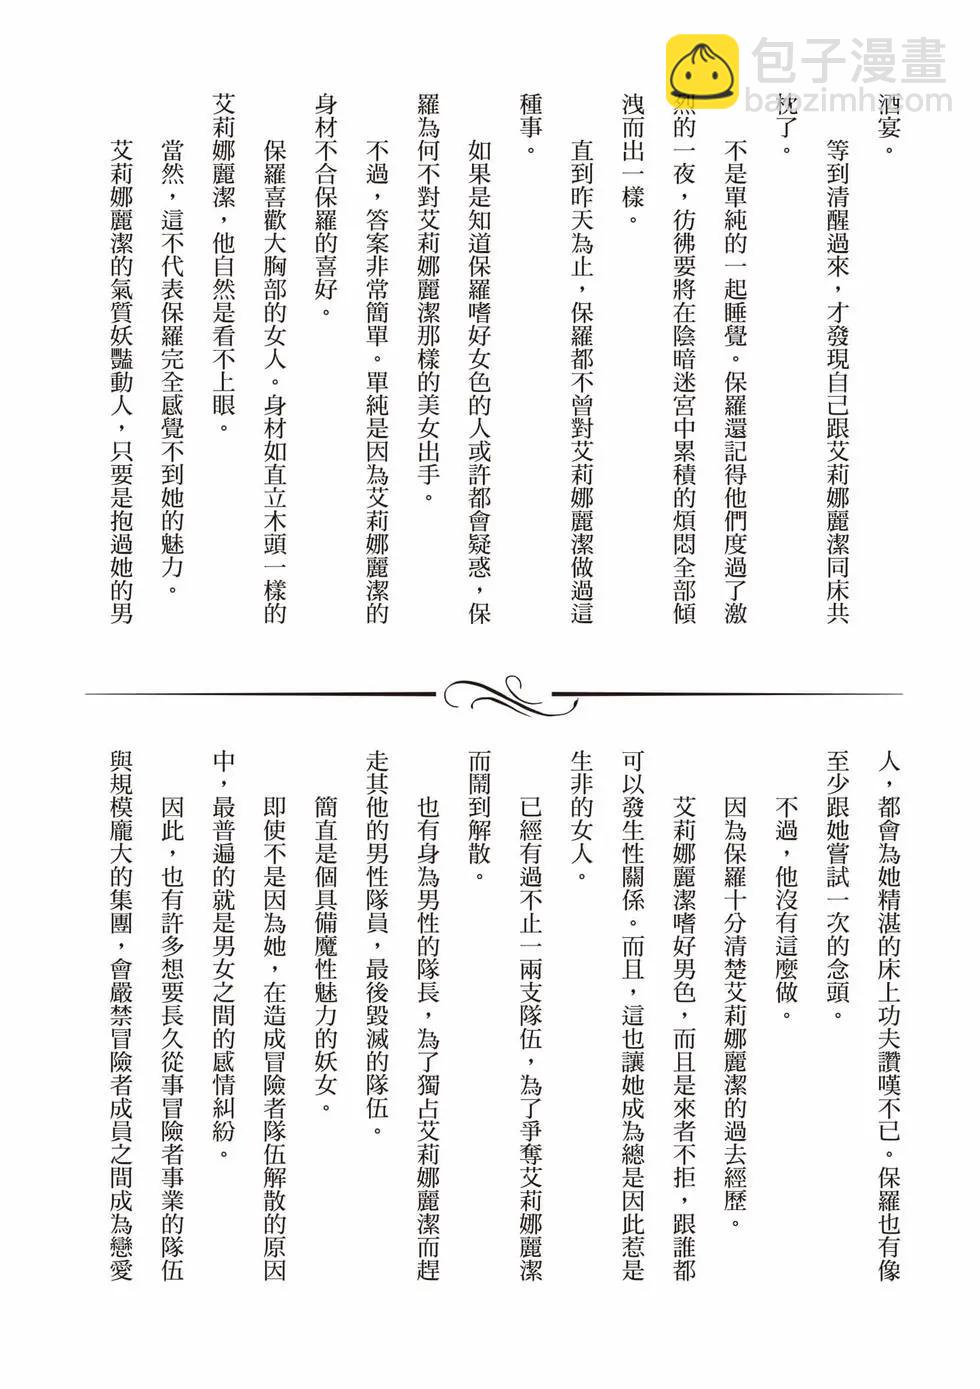 包子漫畫
baozimh.com
酒宴。
等到清醒過來，才發現自己跟艾莉娜麗潔同床共
枕了。
不是單純的一起睡覺。保羅還記得他們度過了激
烈的一夜，彷彿要將在陰暗迷宮中累積的煩悶全部傾
洩而出一樣。
直到昨天為止，保羅都不曾對艾莉娜麗潔做過這
種事。
如果是知道保羅嗜好女色的人或許都會疑惑，保
羅為何不對艾莉娜麗潔那樣的美女出手。
不過，答案非常簡單。單純是因為艾莉娜麗潔的
身材不合保羅的喜好。
保羅喜歡大胸部的女人。身材如直立木頭一樣的
艾莉娜麗潔，他自然是看不上眼。
當然，這不代表保羅完全感覺不到她的魅力。
艾莉娜麗潔的氣質妖豔動人，只要是抱過她的男
人，都會為她精湛的床上功夫讚嘆不已。保羅也有像
至少跟她嘗試一次的念頭。
不過，他沒有這麼做。
因為保羅十分清楚艾莉娜麗潔的過去經歷。
艾莉娜麗潔嗜好男色，而且是來者不拒，跟誰都
可以發生性關係。而且，這也讓她成為總是因此惹是
生非的女人。
已經有過不止一兩支隊伍，為了爭奪艾莉娜麗潔
而鬧到解散。
也有身為男性的隊長，為了獨占艾莉娜麗潔而趕
走其他的男性隊員，最後毀滅的隊伍。
簡直是個具備魔性魅力的妖女。
即使不是因為她，在造成冒險者隊伍解散的原因
中，最普遍的就是男女之間的感情糾紛。
因此，也有許多想要長久從事冒險者事業的隊伍
與規模龐大的集團，會嚴禁冒險者成員之間成為戀愛